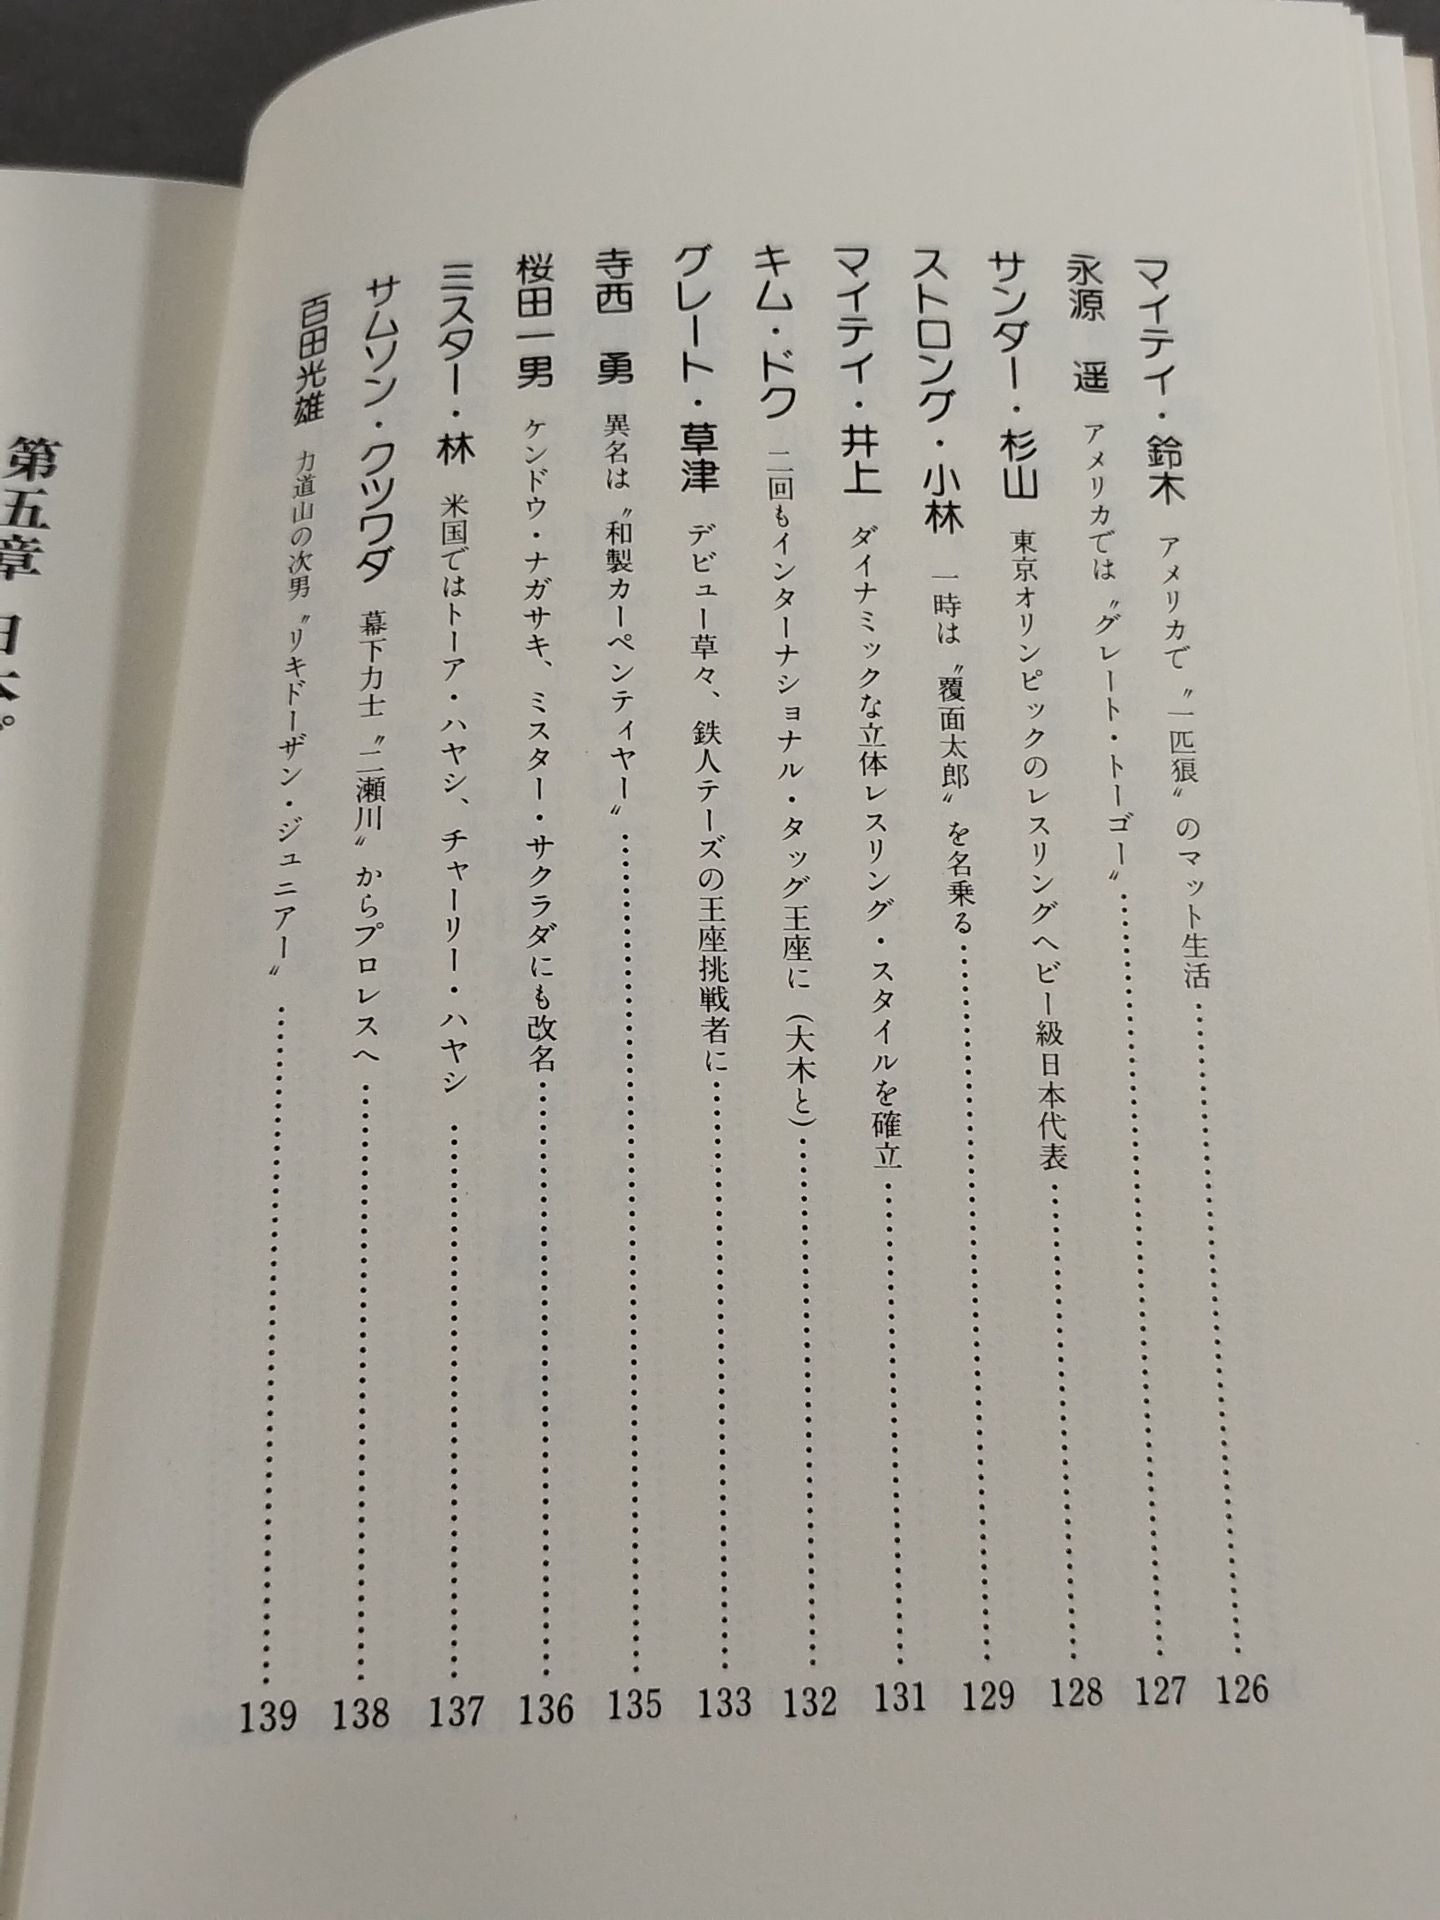 マイティ・鈴木 アメリカで〝一匹狼〟のマット生活……126
永源 遥 アメリカでは〝グレート・トーゴー〟……127
サンダー・杉山 東京オリンピックのレスリングヘビー級日本代表……128
ストロング・小林 一時は〝覆面太郎〟を名乗る……129
マイティ・井上 ダイナミックな立体レスリング・スタイルを確立……131
キム・ドク 二回もインターナショナル・タッグ王座に(大木と)……132
グレート・草津 デビュー草々、鉄人テーズの王座挑戦者に……133
寺西 勇 異名は〝和製カーペンティヤー〟……135
桜田一男 ケンドウ・ナガサキ、ミスター・サクラダにも改名……136
ミスター・林 米国ではトーア・ハヤシ、チャーリー・ハヤシ……137
サムソン・クツワダ 幕下力士〝二瀬川〟からプロレスへ……138
百田光雄 力道山の次男〝リキドーザン・ジュニアー〟……139
第五章 日本プ